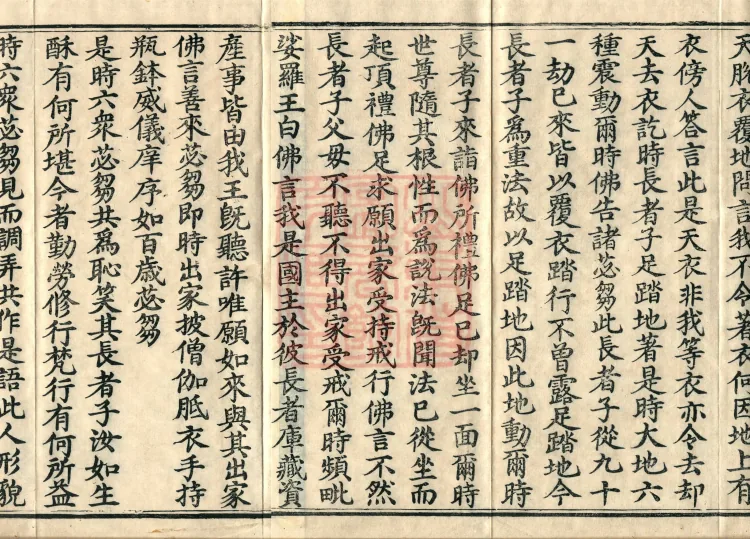 天胸衣覆地問言我不令著衣何因地上有
衣傍人答言此是天衣非我等衣亦令去却
天去衣訖時長者子足踏地著是時大地六
種震動爾時佛告諸苾芻此長者子從九十
一劫已來皆以覆衣踏行不曾露足踏地今
長者子為重法故以足踏地因此地動爾時
長者子來詣佛所禮佛足已却坐一面爾時
世尊隨其根性而為說法既聞法已從坐而
起頂禮佛足求願出家受持戒行佛言不然
長者子父母不聽不得出家受戒爾時頻毗
娑羅王白佛言我是國主於彼長者庫藏資
產事皆由我王既聽許唯願如來與其出家
佛言善來苾芻即時出家披僧伽胝衣手持
瓶鉢威儀庠序如百歲苾芻
是時六衆苾芻共為恥笑其長者子汝如生
酥有何所堪今者勤勞修行梵行有何所益
時六衆苾芻見而調弄共作是語此人形貌